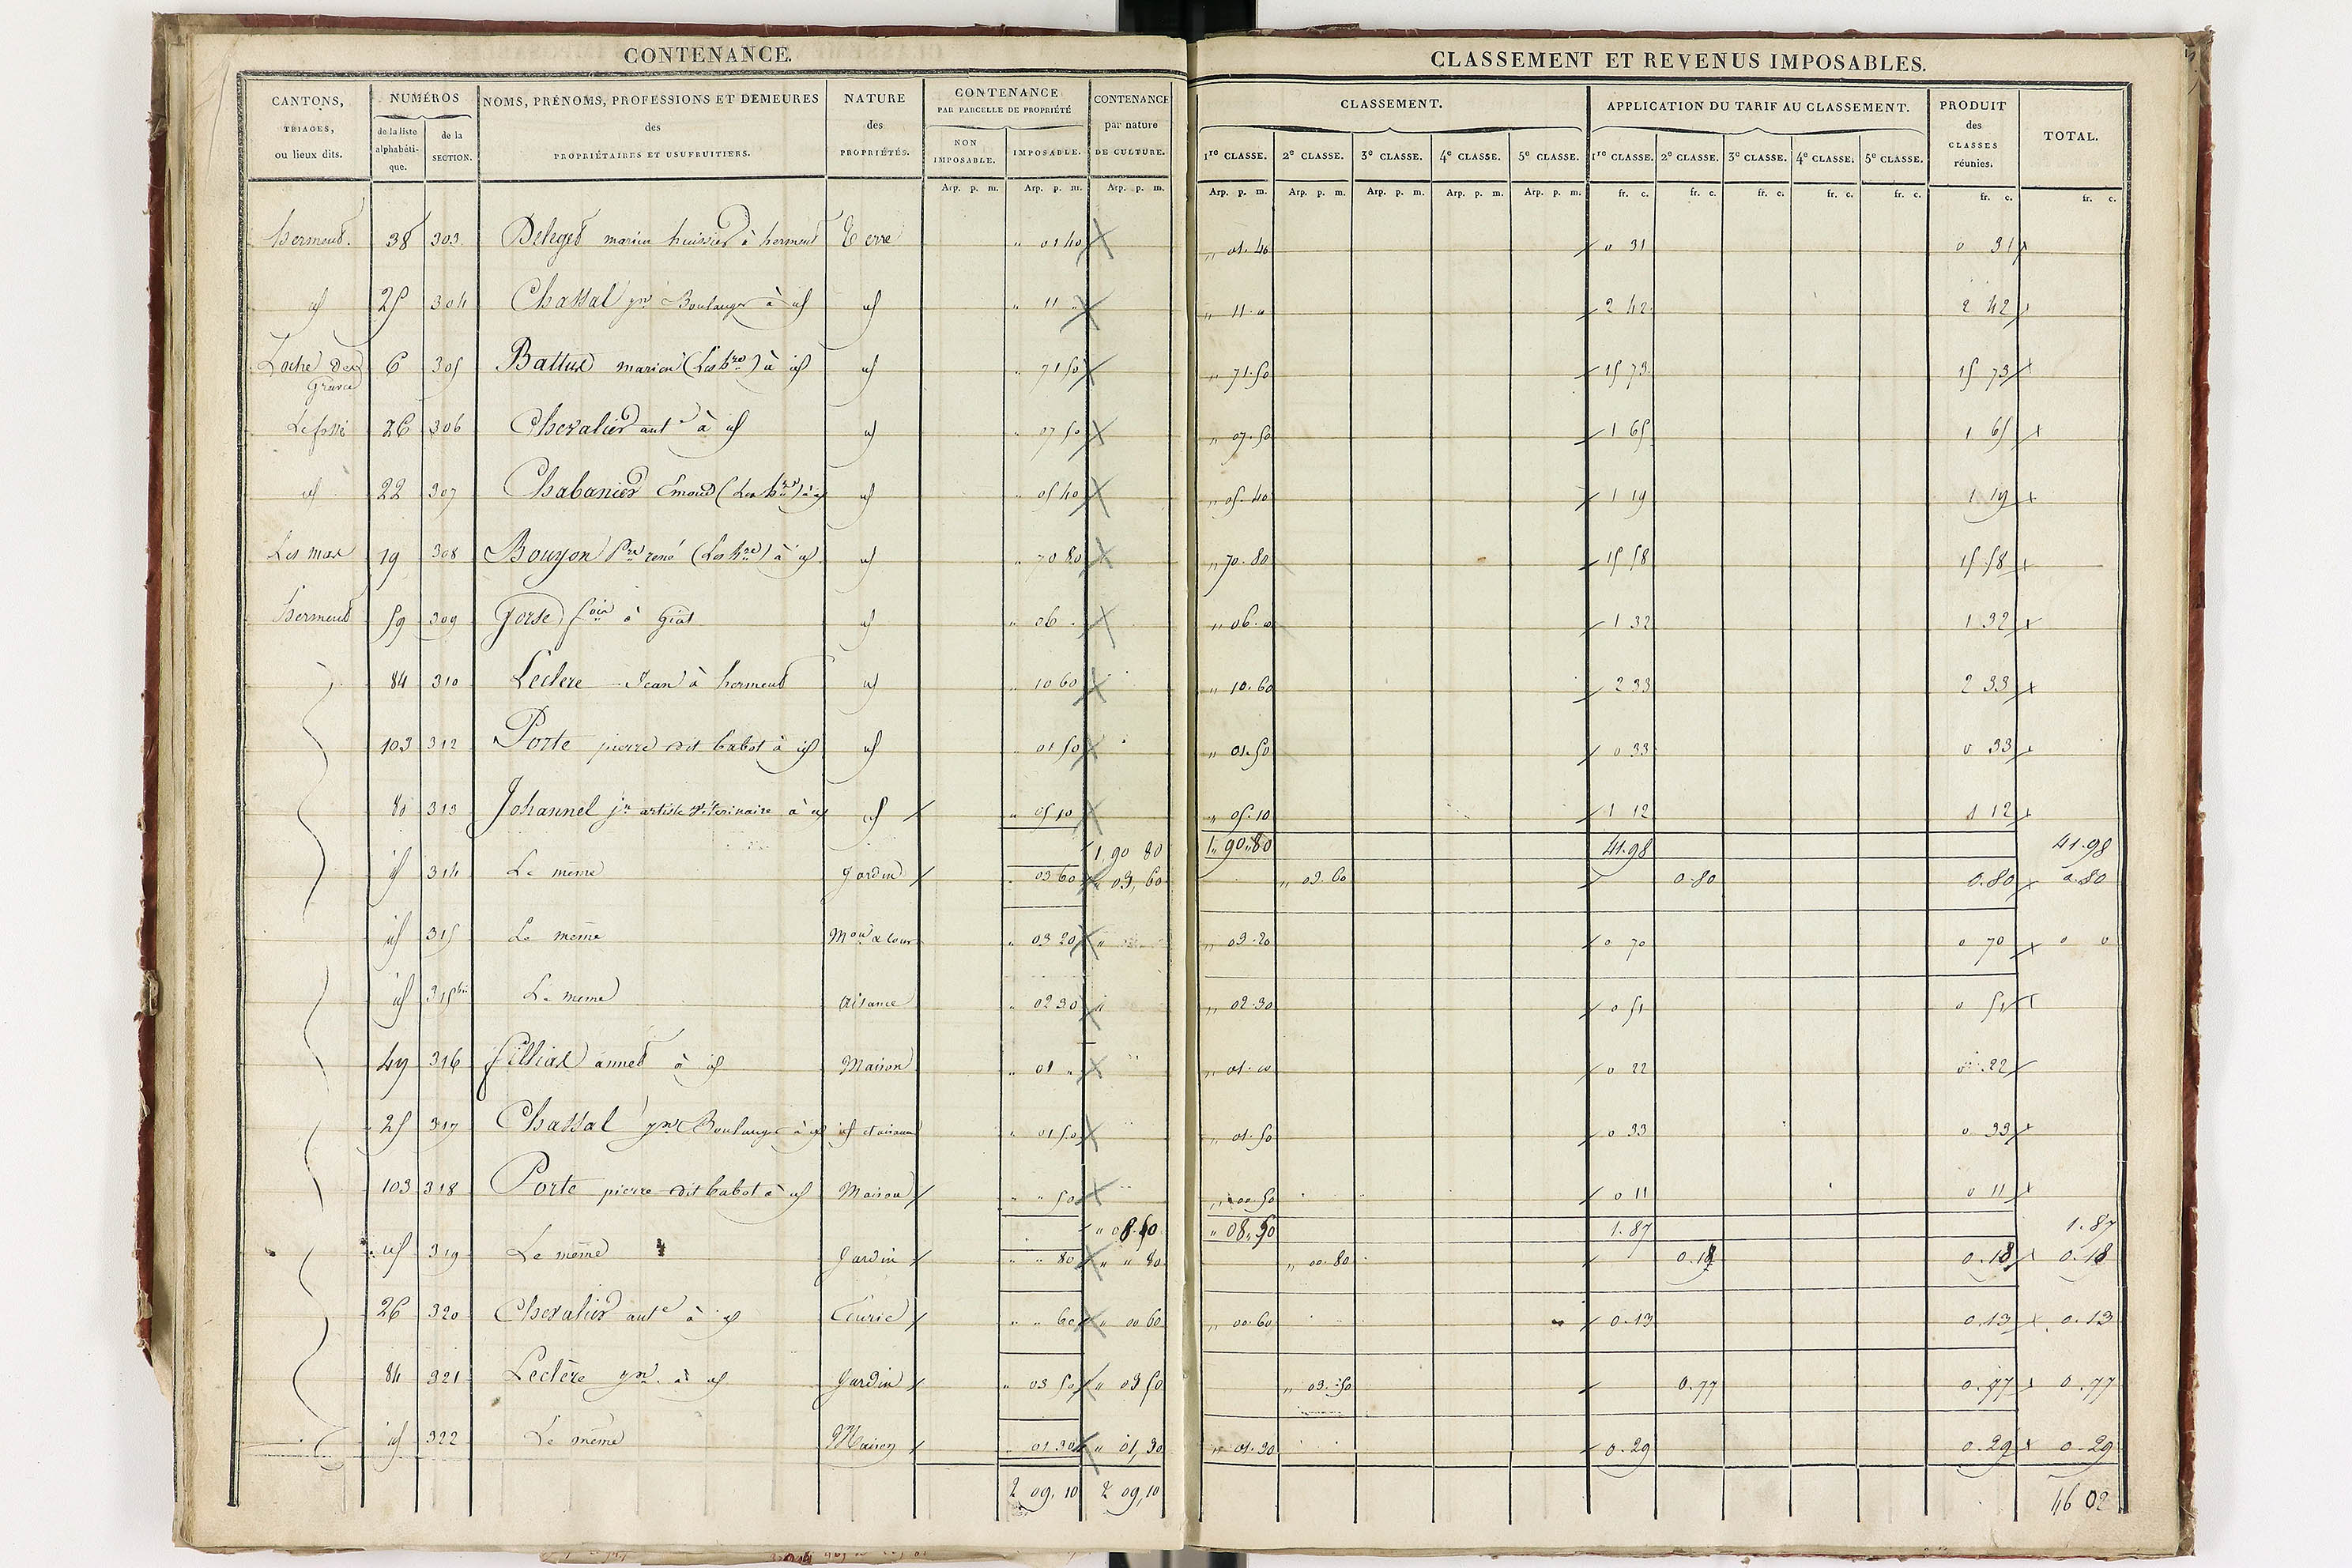 CONTENANCE.
CLASSEMENT ET REVENUS IMPOSABLES.
CANTONS, TRIAGES, ou lieux dits.
NUMÉROS
de la liste alphabétique.
de la SECTION.
NOMS, PRÉNOMS, PROFESSIONS ET DEMEURES des PROPRIÉTAIRES ET USUFRUITIERS.
NATURE des PROPRIÉTÉS.
CONTENANCE PAR PARCELLE DE PROPRIÉTÉ
NON IMPOSABLE.
IMPOSABLE.
CONTENANCE par nature DE CULTURE.
CLASSEMENT.
1re CLASSE. 2e CLASSE. 3e CLASSE. 4e CLASSE. 5e CLASSE.
APPLICATION DU TARIF AU CLASSEMENT.
1re CLASSE. 2e CLASSE. 3e CLASSE. 4e CLASSE. 5e CLASSE.
PRODUIT des CLASSES réunies.
TOTAL.
Arp. p. m. Arp. p. m. Arp. p. m. Arp. p. m. Arp. p. m. Arp. p. m. Arp. p. m. Arp. p. m. fr. c. fr. c. fr. c. fr. c. fr. c. fr. c. fr. c.
herment. 38 303 Deleget marien huissier à herment Terre " 01 40 " 01. 40 0 31 0 31
id 25 304 Chassal jn Boulanger à id id " 11 " " 11. " 2 42 2 42
6 305 Battut marien (Les hres) à id id " 71 50 " 71. 50 15 73 15 73
Le fossé 26 306 Chevalier ante à id id " 07 50 " 07. 50 1 65 1 65
id 22 307 Chabanier (Les hres) à id id " 05 40 " 05. 40 1 19 1 19
Les mas 19 308 Bouyon Pre rené (Les hres) à id id " 70 80 " 70. 80 15 58 15 58
herment 59 309 Gorse fois à Giat id " 06 " " 06. " 1 32 1 32
84 310 Leclere Jean à herment id " 10 60 " 10. 60 2 33 2 33
103 312 Porte pierre dit babot à id id " 01 50 " 01. 50 0 33 0 33
80 313 Johannel jn artiste vétérinaire à id id " 05 10 " 05. 10 1 12 1 12
1, 90 80 1 " 90 " 80 41.98 41.98
id 314 Le même Jardin " 03 60 " 03, 60 " 03. 60 0.80 0.80 0.80
id 315 Le même Mon & cour " 03 20 " " 03. 20 0 70 0 70 0 0
id 315 bis Le même Aisance " 02 30 " " 02. 30 0 51 0 51
49 316 annet à id Maison " 01 " " 01. " 0 22 0 22
25 317 Chassal jn Boulanger à id id et aisance " 01 50 " 01. 50 0 33 0 33
103 318 Porte pierre dit babot à id Maison " " 50 " 00. 50 0 11 0 11
" 08. 50 " 08 " 50 1.87 1.87
id 319 Le même Jardin " " 80 " " 80 " 00. 80 0.18 0.18 0.18
26 320 Chevalier ante à id Ecurie " " 60 " 00 60 " 00. 60 0.13 0.13 0.13
84 321 Leclère jn. à id Jardin " 03 50 " 03 50 " 03. 50 0.77 0.77 0.77
id 322 Le même Maison " 01 30 " 01, 30 " 01. 30 0.29 0.29 0.29
2 09, 10 2 09, 10 46 02